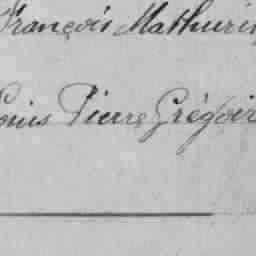 François Mathurin
Louis Pierre Grégoire